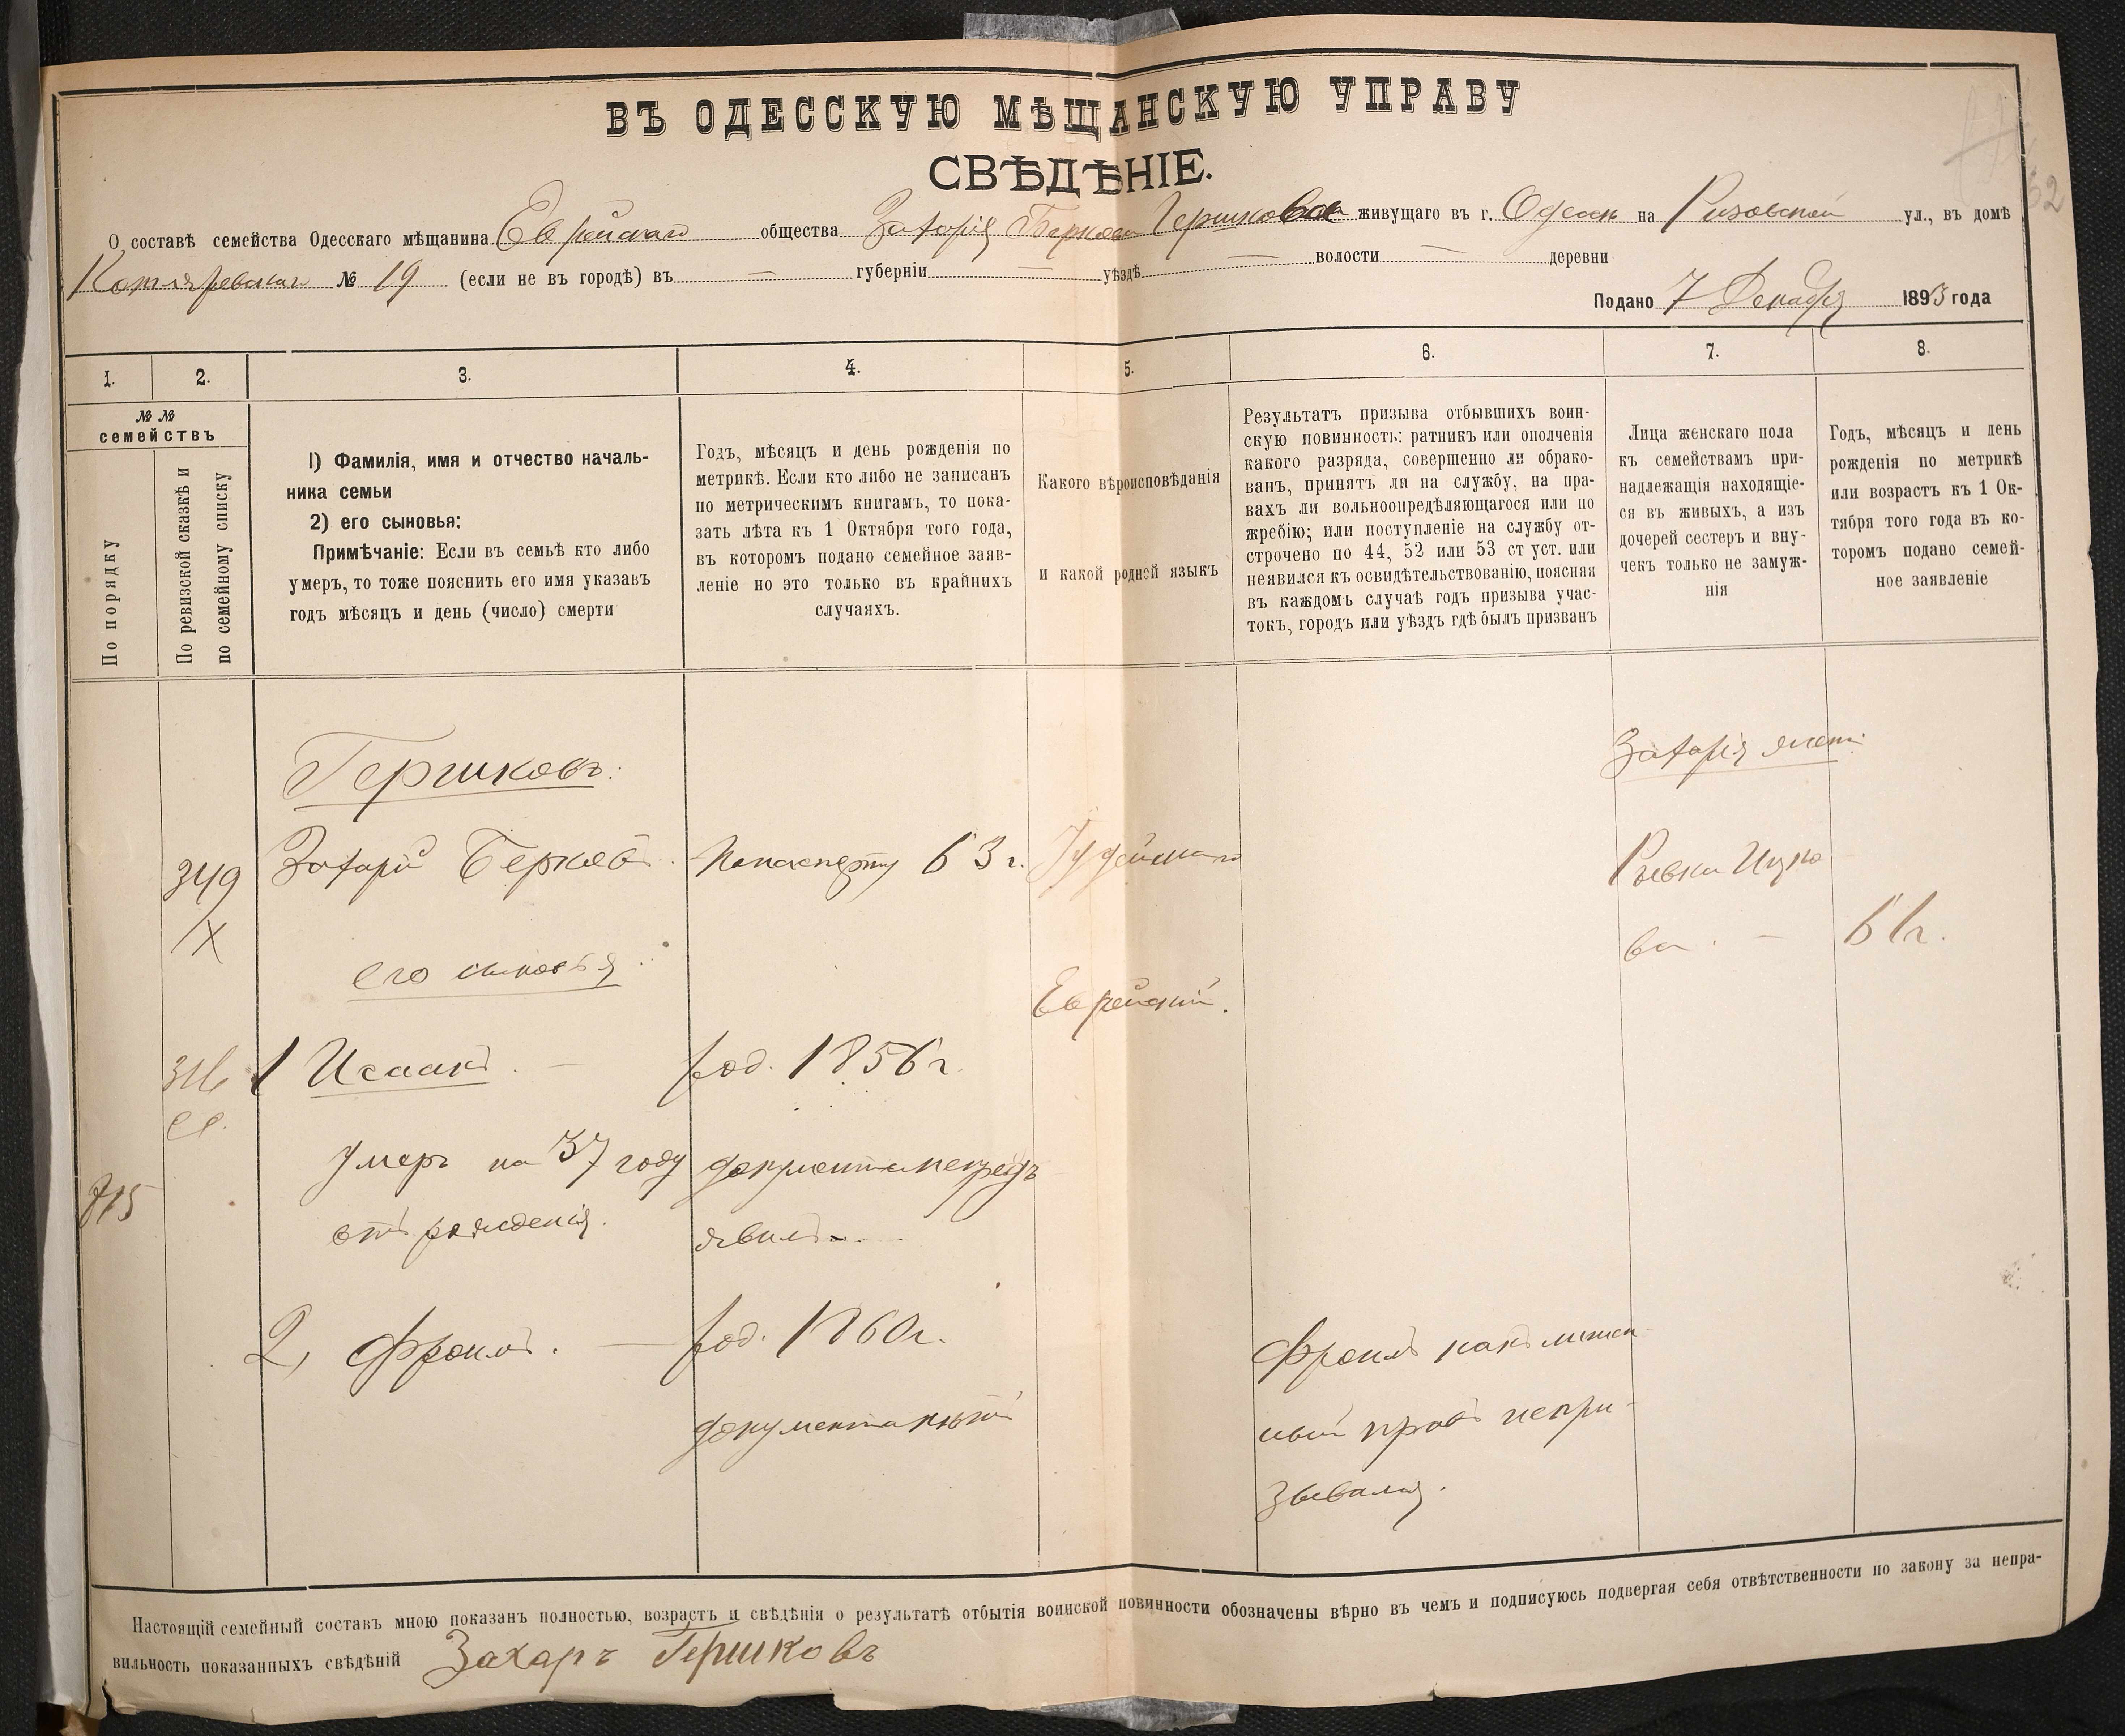 ВЪ ОДЕССКУЮ МѢЩАНСКУЮ УПРАВУ
СВѢДѢНІЕ.
О составѣ семейства Одесскаго мѣщанина Еврейскаго общества Захарія Беркова Гершкова живущаго въ г. Одессѣ на Ризовской ул., въ домѣ
Котляревскаго № 19 (если не въ городѣ) въ — губерніи — уѣздѣ — волости — деревни
Подано 7 Декабря 1893 года
1. 2. 3. 4. 5. 6. 7. 8.
№ №
семействъ
По порядку
По ревизской сказкѣ и
по семейному списку
1) Фамилія, имя и отчество началь-
ника семьи
2) его сыновья:
Примѣчаніе: Если въ семьѣ кто либо
умеръ, то тоже пояснить его имя указавъ
годъ мѣсяцъ и день (число) смерти
Годъ, мѣсяцъ и день рожденія по
метрикѣ. Если кто либо не записанъ
по метрическимъ книгамъ, то пока-
зать лѣта къ 1 Октября того года,
въ которомъ подано семейное заяв-
леніе но это только въ крайнихъ
случаяхъ.
Какого вѣроисповѣданія
и какой родной языкъ
Результатъ призыва отбывшихъ воин-
скую повинность: ратникъ или ополченія
какого разряда, совершенно ли обрако-
ванъ, принятъ ли на службу, на пра-
вахъ ли вольноопредѣляющагося или по
жребію; или поступленіе на службу от-
строчено по 44, 52 или 53 ст уст. или
неявился къ освидѣтельствованію, поясняя
въ каждомъ случаѣ годъ призыва учас-
токъ, городъ или уѣздъ гдѣ былъ призванъ
Лица женскаго пола
къ семействамъ при-
надлежащія находящіе-
ся въ живыхъ, а изъ
дочерей сестеръ и вну-
чекъ только не замуж-
нія
Годъ, мѣсяцъ и день
рожденія по метрикѣ
или возрастъ къ 1 Ок-
тября того года въ ко-
торомъ подано семей-
ное заявленіе
Гершковъ.
Захарія жена:
349 Захарій Берковъ. По паспорту 63 г. Іудейскаго
X
Ривка Ицко
ва. — 61 г.
его сыновья:
Еврейскій.
1 Исаакъ. — род. 1856 г.
умеръ на 37 году документа непредъ
отъ рожденія. явилъ.
2, Фроимъ. — род. 1860 г.
документа нѣтъ
Фроимъ какъ лишен-
ный правъ непри-
зывался.
Настоящій семейный составъ мною показанъ полностью, возрастъ и свѣдѣнія о результатѣ отбытія воинской повинности обозначены вѣрно въ чемъ и подписуюсь подвергая себя отвѣтственности по закону за непра-
вильность показанныхъ свѣдѣній Захаръ Гершковъ